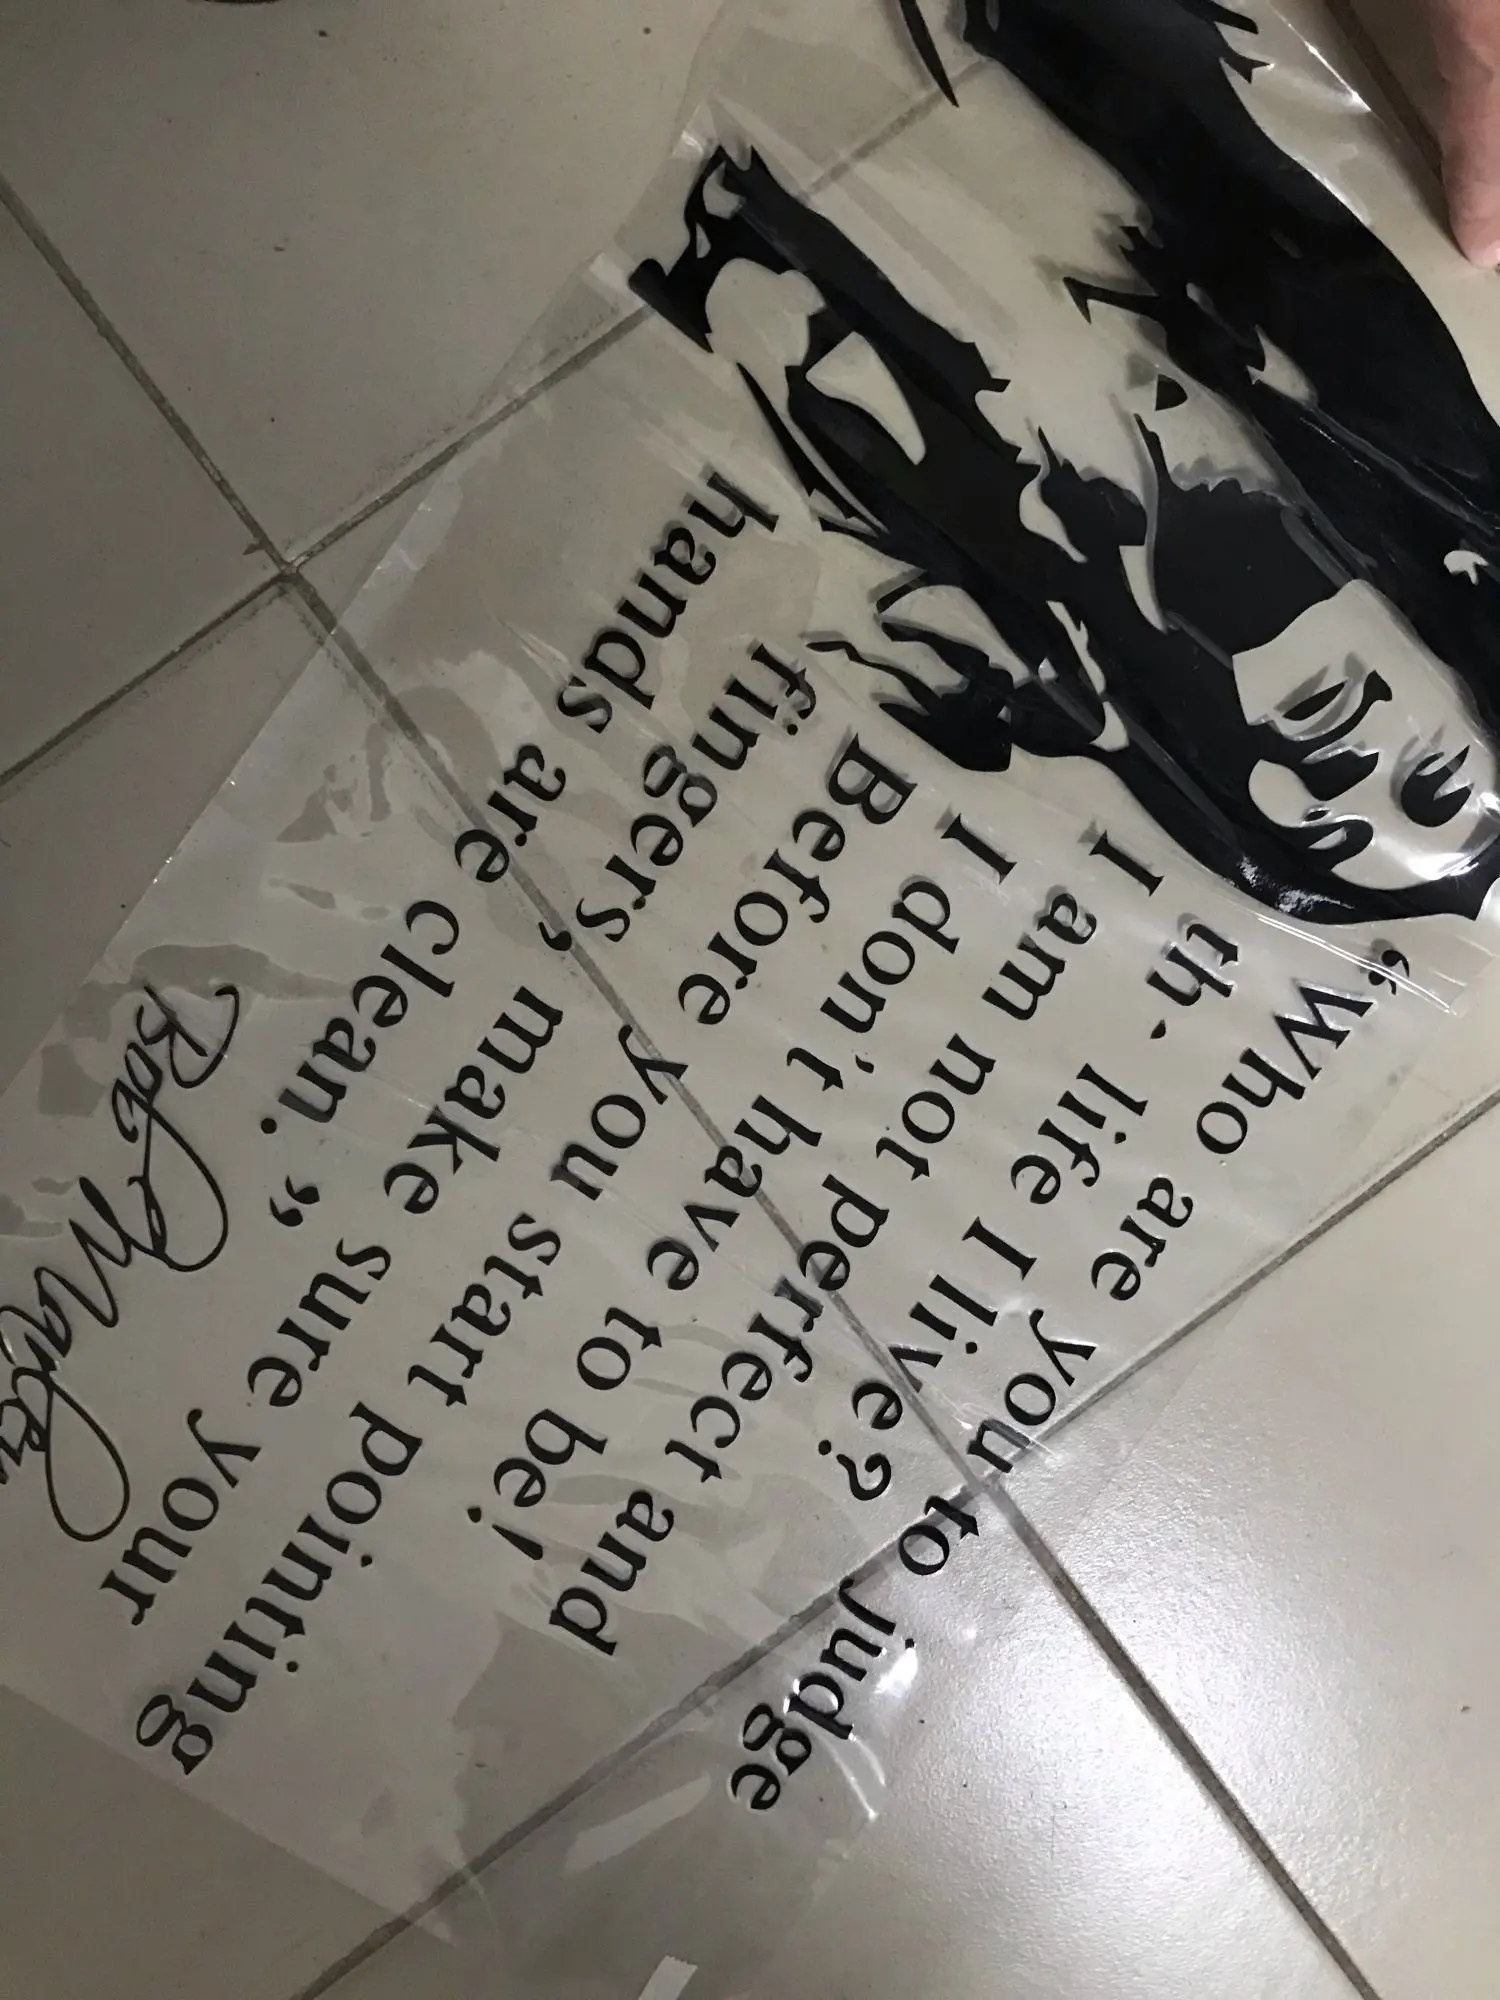 “Who are you to judge
th life I live?
I am not perfect and
I don't have to be!
Before you start pointing
fingers, make sure your
hands are clean.”
Bob Marley